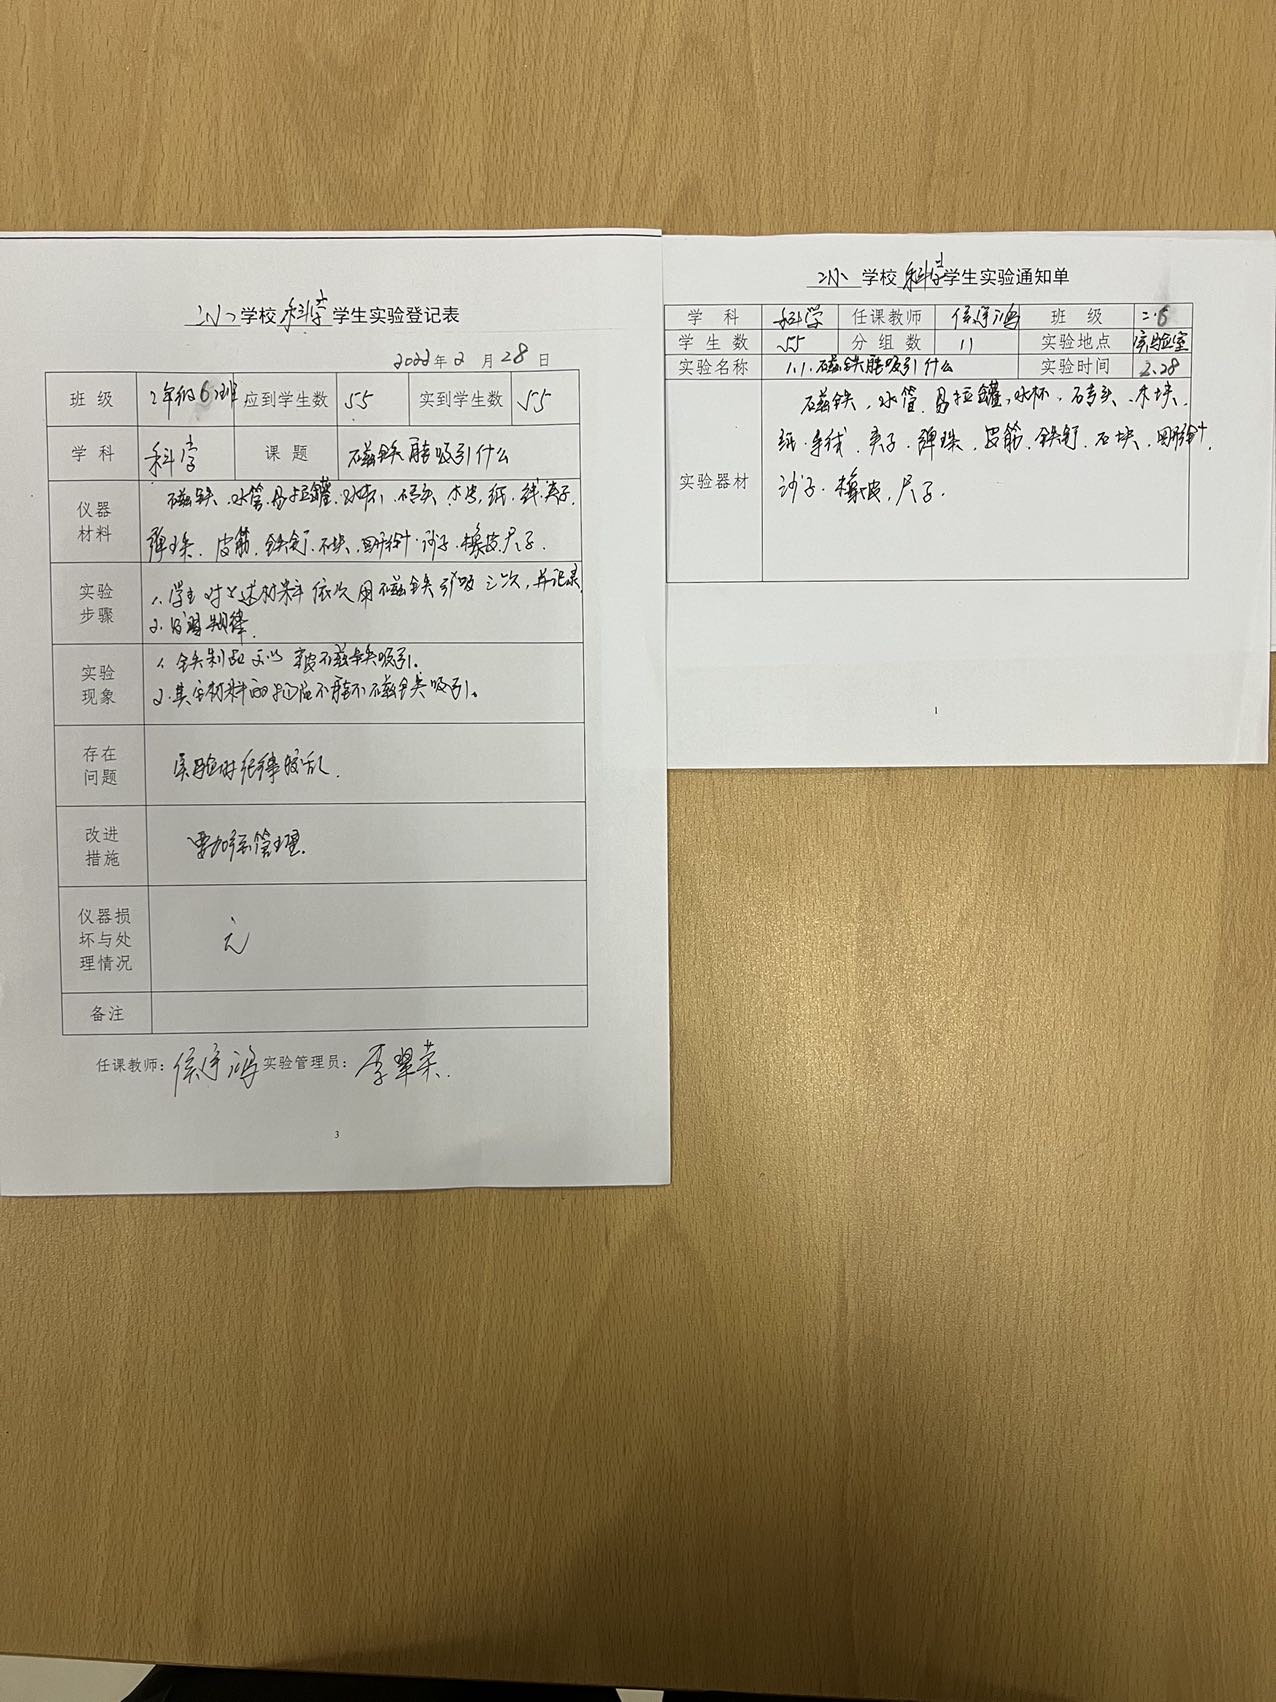 学校科学学生实验登记表
2022年2月28日
班级 2年级6班 应到学生数 55 实到学生数 55
学科 科学 课题 磁铁能吸引什么
仪器材料 磁铁、水管、易拉罐、水杯、砖头、木块、纸、线、夹子、
弹珠、皮筋、铁钉、石块、回形针、沙子、橡皮、尺子.
实验步骤 1.学生对上述材料依次用磁铁引吸三次,并记录
2.规律.
实验现象 1.铁制品可以被磁铁吸引.
2.其它材料的物品不能被磁铁吸引。
存在问题 实验时纪律较乱.
改进措施 要加强管理.
仪器损坏与处理情况 无
备注
任课教师: 实验管理员: 李翠荣.
3
学校科学学生实验通知单
学科 科学 任课教师 班级 二.6
学生数 55 分组数 11 实验地点 实验室
实验名称 1.1.磁铁能吸引什么 实验时间 2.28
磁铁、水管、易拉罐、水杯、砖头、木块、
纸、手线、夹子、弹珠、皮筋、铁钉、石块、回形针、
实验器材 沙子、橡皮、尺子.
1